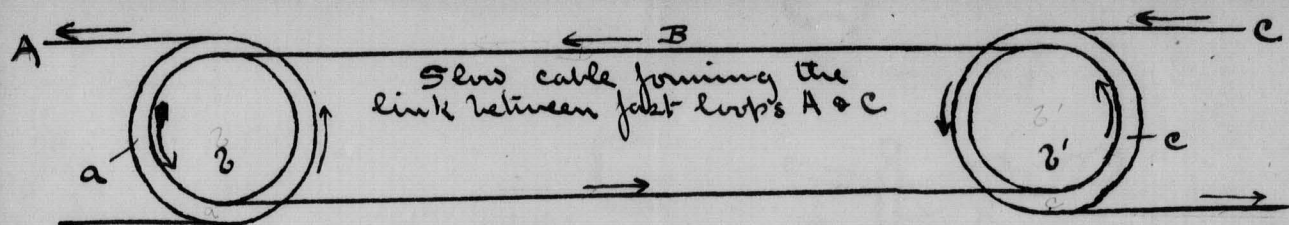 A
B
C
Slow cable forming the
link between fast loops A & C
a
b
b'
c